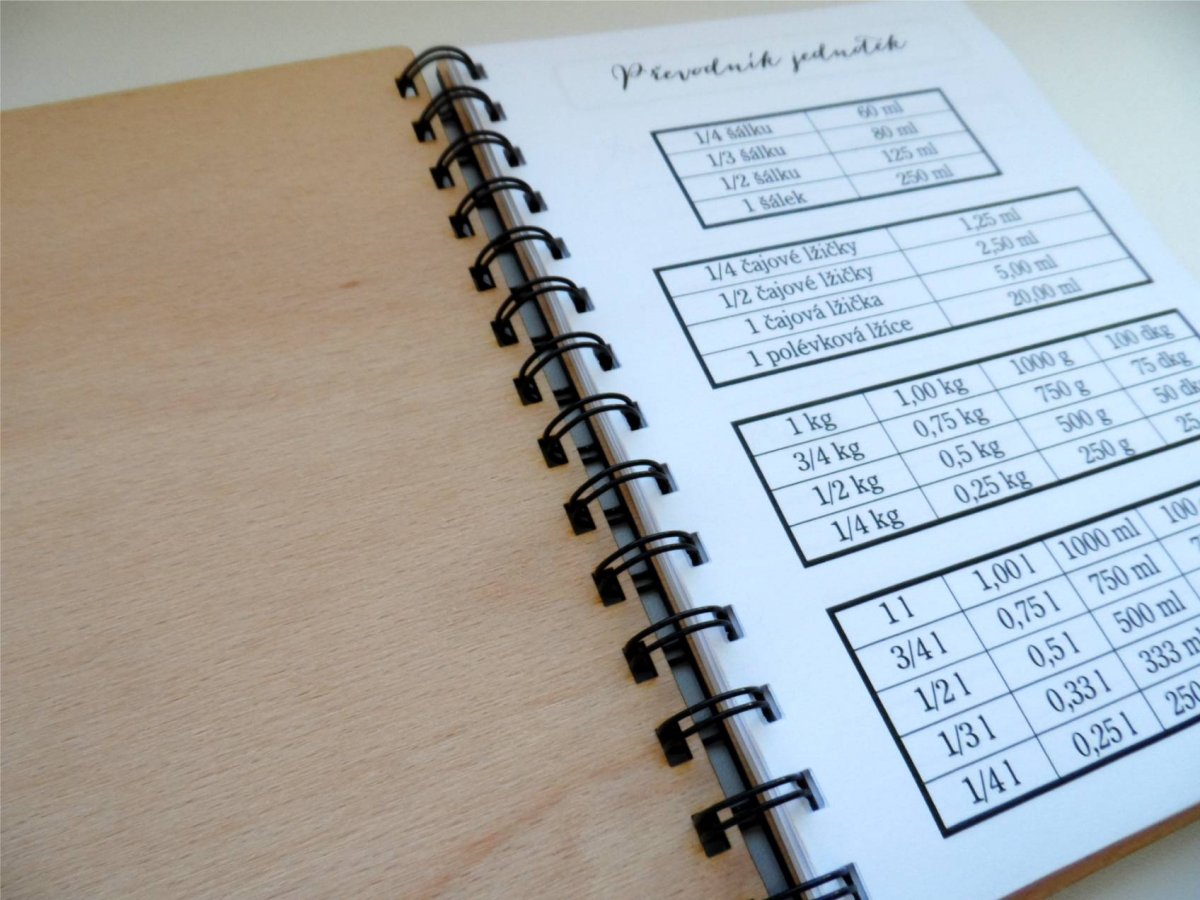 Převodník jednotek
1/4 šálku 60 ml
1/3 šálku 80 ml
1/2 šálku 125 ml
1 šálek 250 ml
1/4 čajové lžičky 1,25 ml
1/2 čajové lžičky 2,50 ml
1 čajová lžička 5,00 ml
1 polévková lžíce 20,00 ml
1 kg 1,00 kg 1000 g 100 dkg
3/4 kg 0,75 kg 750 g 75 dkg
1/2 kg 0,5 kg 500 g 50
1/4 kg 0,25 kg 250 g 25
1 l 1,00 l 1000 ml 100
3/4 l 0,75 l 750 ml
1/2 l 0,5 l 500 ml
1/3 l 0,33 l 333
1/4 l 0,25 l 250